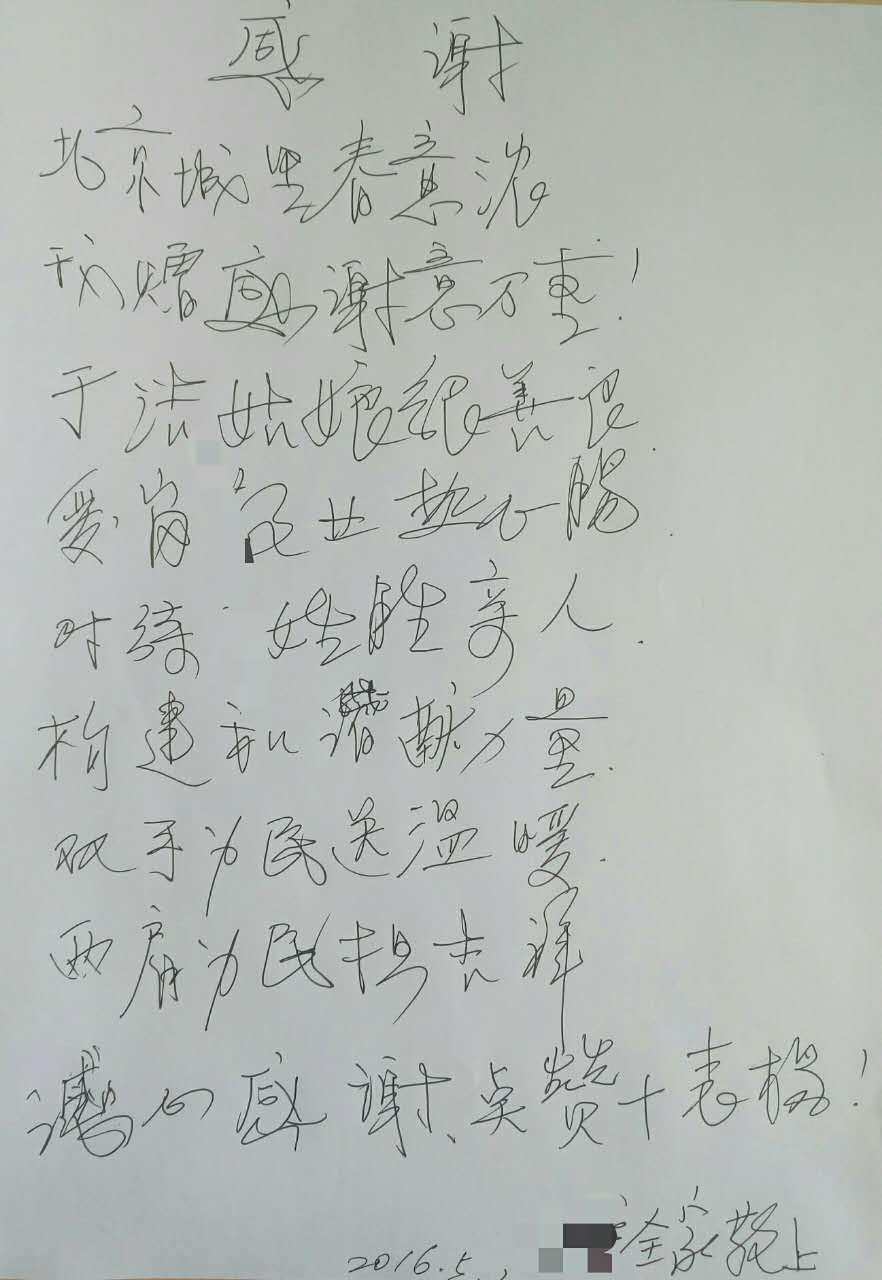 感 谢
北京城里春意浓
我赠感谢意不重！
于洁姑娘很善良.
爱岗 业热心肠.
对 姓胜亲人.
构建和谐献力量.
双手为民送温暖.
两肩为民担吉祥
心感谢、点赞十表扬！
2016.5. 全家敬上